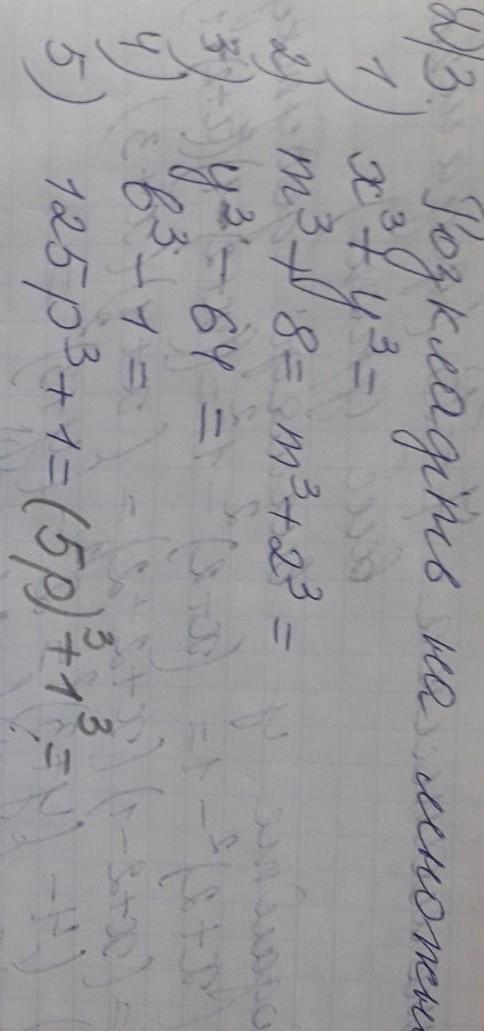 Д/З. Розкладіть на множни
1) x³ + y³ =
2) m³ + 8 = m³ + 2³ =
3) y³ - 64 =
4) b³ - 1 =
5) 125p³ + 1 = (5p)³ + 1³ =